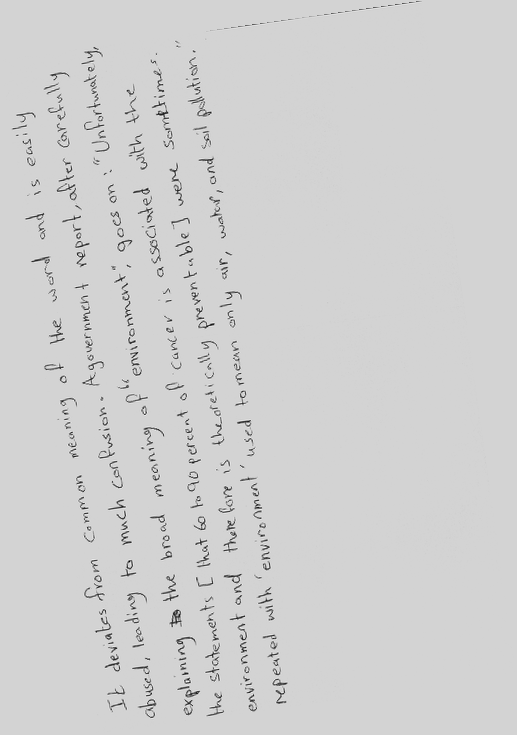 It deviates from common meaning of the word and is easily
abused, leading to much confusion. A government report, after carefully
explaining the broad meaning of "environment", goes on: "Unfortunately,
the statements [that 60 to 90 percent of cancer is associated with the
environment and therefore is theoretically preventable] were sometimes
repeated with 'environment' used to mean only air, water, and soil pollution."